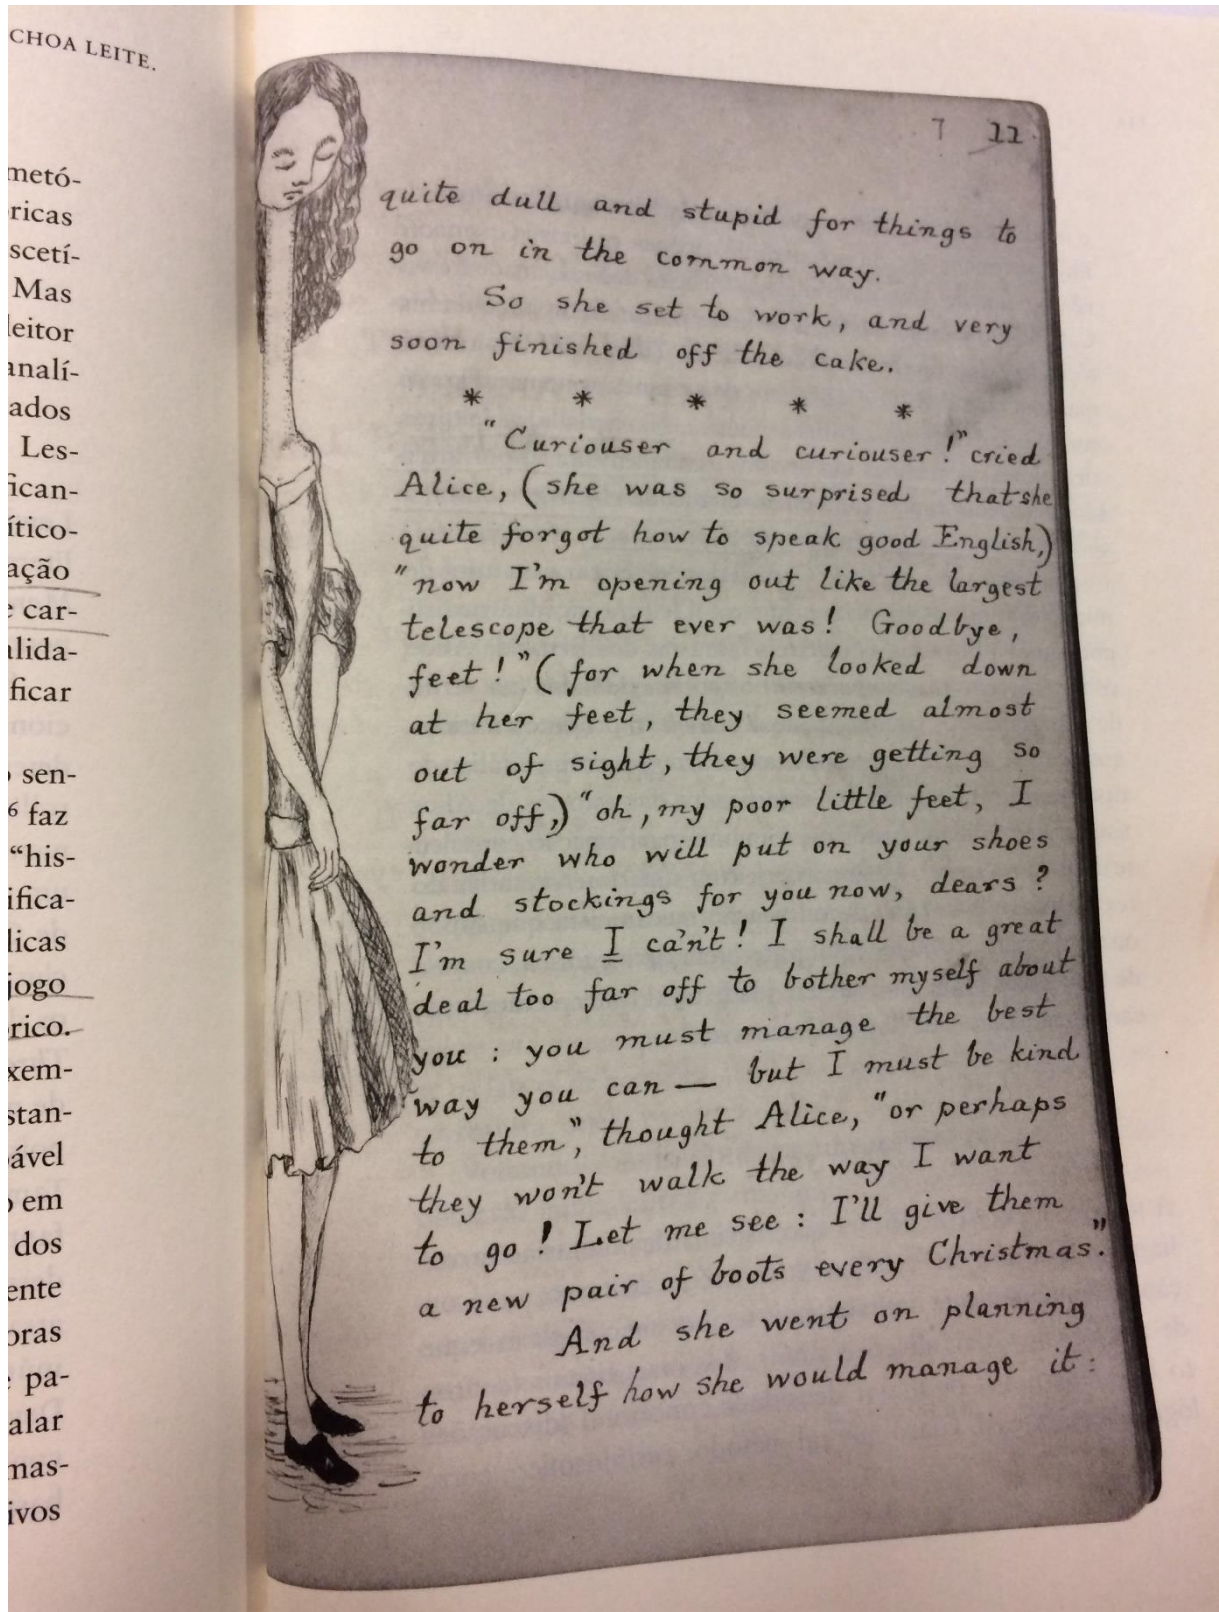 CHOA LEITE.
metó-
ricas
scetí-
Mas
leitor
analí-
ados
Les-
fican-
ítico-
ação
car-
alida-
ficar
sen-
6 faz
“his-
ifica-
licas
jogo
rico.
xem-
stan-
ável
em
dos
ente
oras
pa-
alar
mas-
ivos
7 11
quite dull and stupid for things to
go on in the common way.
So she set to work, and very
soon finished off the cake.
* * * * *
"Curiouser and curiouser!" cried
Alice, (she was so surprised that she
quite forgot how to speak good English,)
"now I'm opening out like the largest
telescope that ever was! Goodbye,
feet!" (for when she looked down
at her feet, they seemed almost
out of sight, they were getting so
far off,) "oh, my poor little feet, I
wonder who will put on your shoes
and stockings for you now, dears?
I'm sure I ca'n't! I shall be a great
deal too far off to bother myself about
you: you must manage the best
way you can — but I must be kind
to them", thought Alice, "or perhaps
they won't walk the way I want
to go! Let me see: I'll give them
a new pair of boots every Christmas."
And she went on planning
to herself how she would manage it: